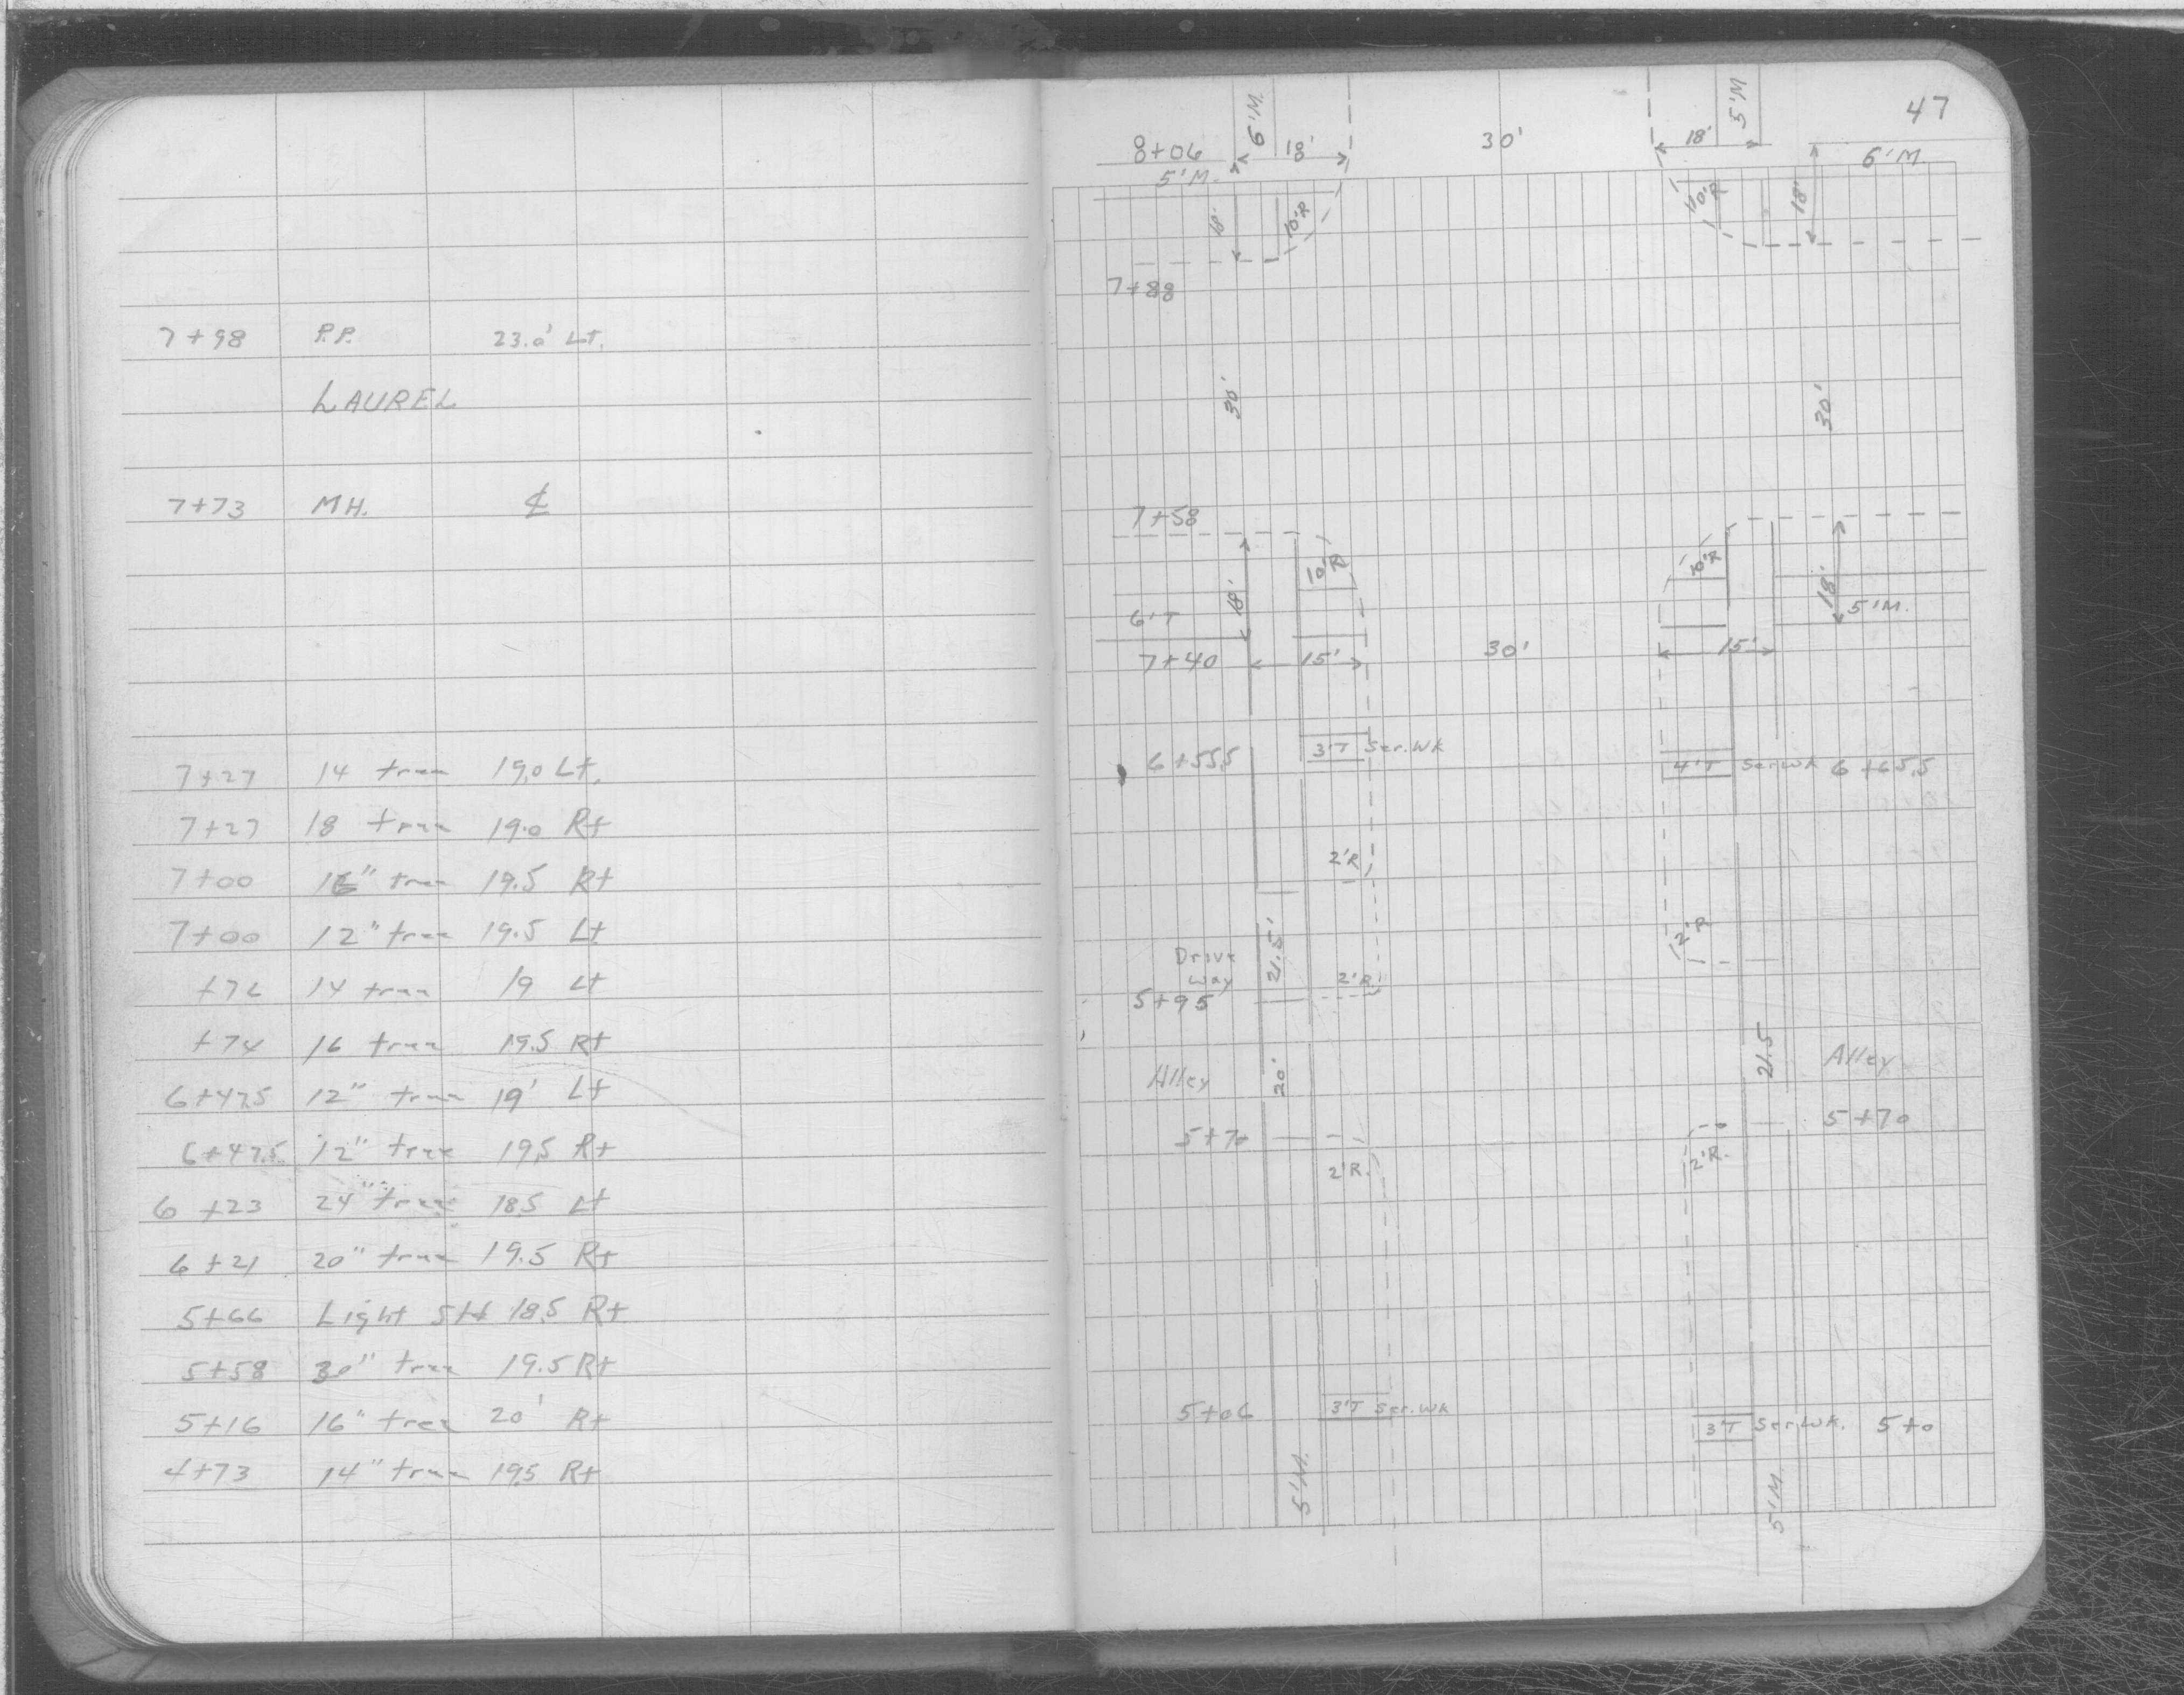 7+98 P.P. 23.0' Lt.
LAUREL
7+73 MH. ℄
7+27 14 tree 19.0 Lt.
7+27 18 tree 19.0 Rt
7+00 16" tree 19.5 Rt
7+00 12" tree 19.5 Lt
+76 14 tree 19 Lt
+74 16 tree 19.5 Rt
6+47.5 12" tree 19' Lt
6+47.5 12" tree 19.5 Rt
6+23 24" tree 18.5 Lt
6+21 20" tree 19.5 Rt
5+66 Light Std 18.5 Rt
5+58 30" tree 19.5 Rt
5+16 16" tree 20' Rt
4+73 14" tree 19.5 Rt
47
6'M. 5'M
8+06 18' 30' 18' 6'M.
5'M.
18' 10'R 10'R 18'
7+88
30' 30'
7+58
10'R 10'R
18' 18'
6'T 5'M.
7+40 15' 30' 15'
6+55.5 3'T Ser.Wk 4'T Ser.Wk 6+65.5
2'R
2'R
21.5'
Drive
way 2'R.
5+95
21.5 Alley
Alley 20'
5+70 5+70
2'R. 2'R.
5+06 3'T Ser.Wk 3'T Ser.Wk. 5+0
5'M. 5'M.